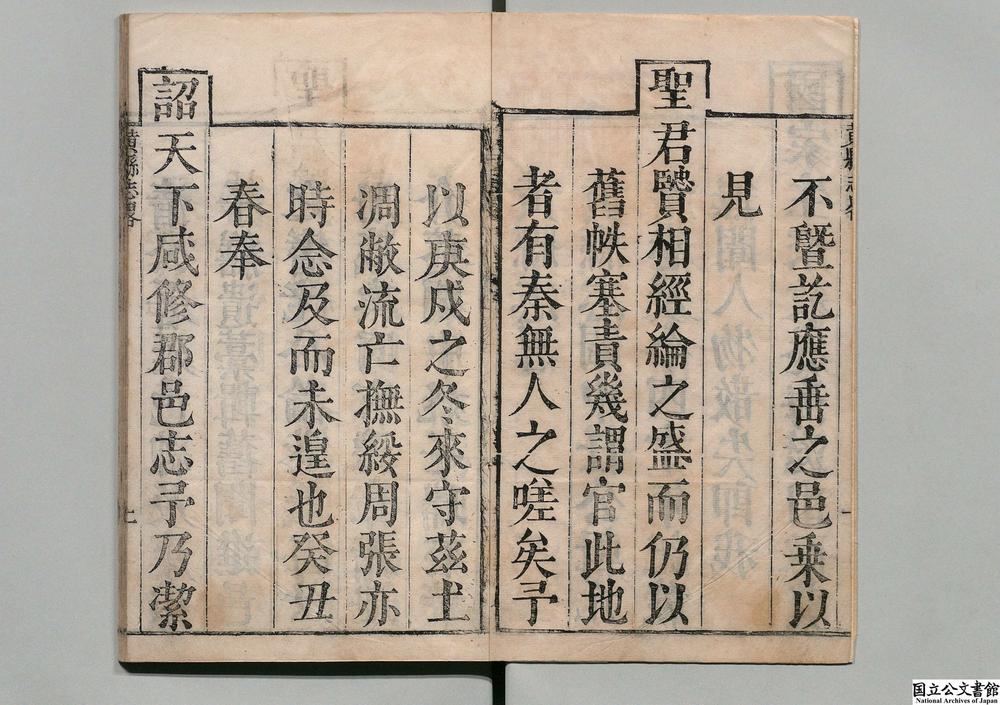 不暨訖應畨之邑乗以
見
聖君賢相經綸之盛而仍以
舊帙塞責幾謂官此地
者有秦無人之嗟矣予
以庚戍之冬來守茲土
凋敝流亡撫綏周張亦
時念及而未遑也癸丑
春奉
詔天下咸修郡邑志予乃潔
黃縣志畧
上
国立公文書館
National Archives of Japan